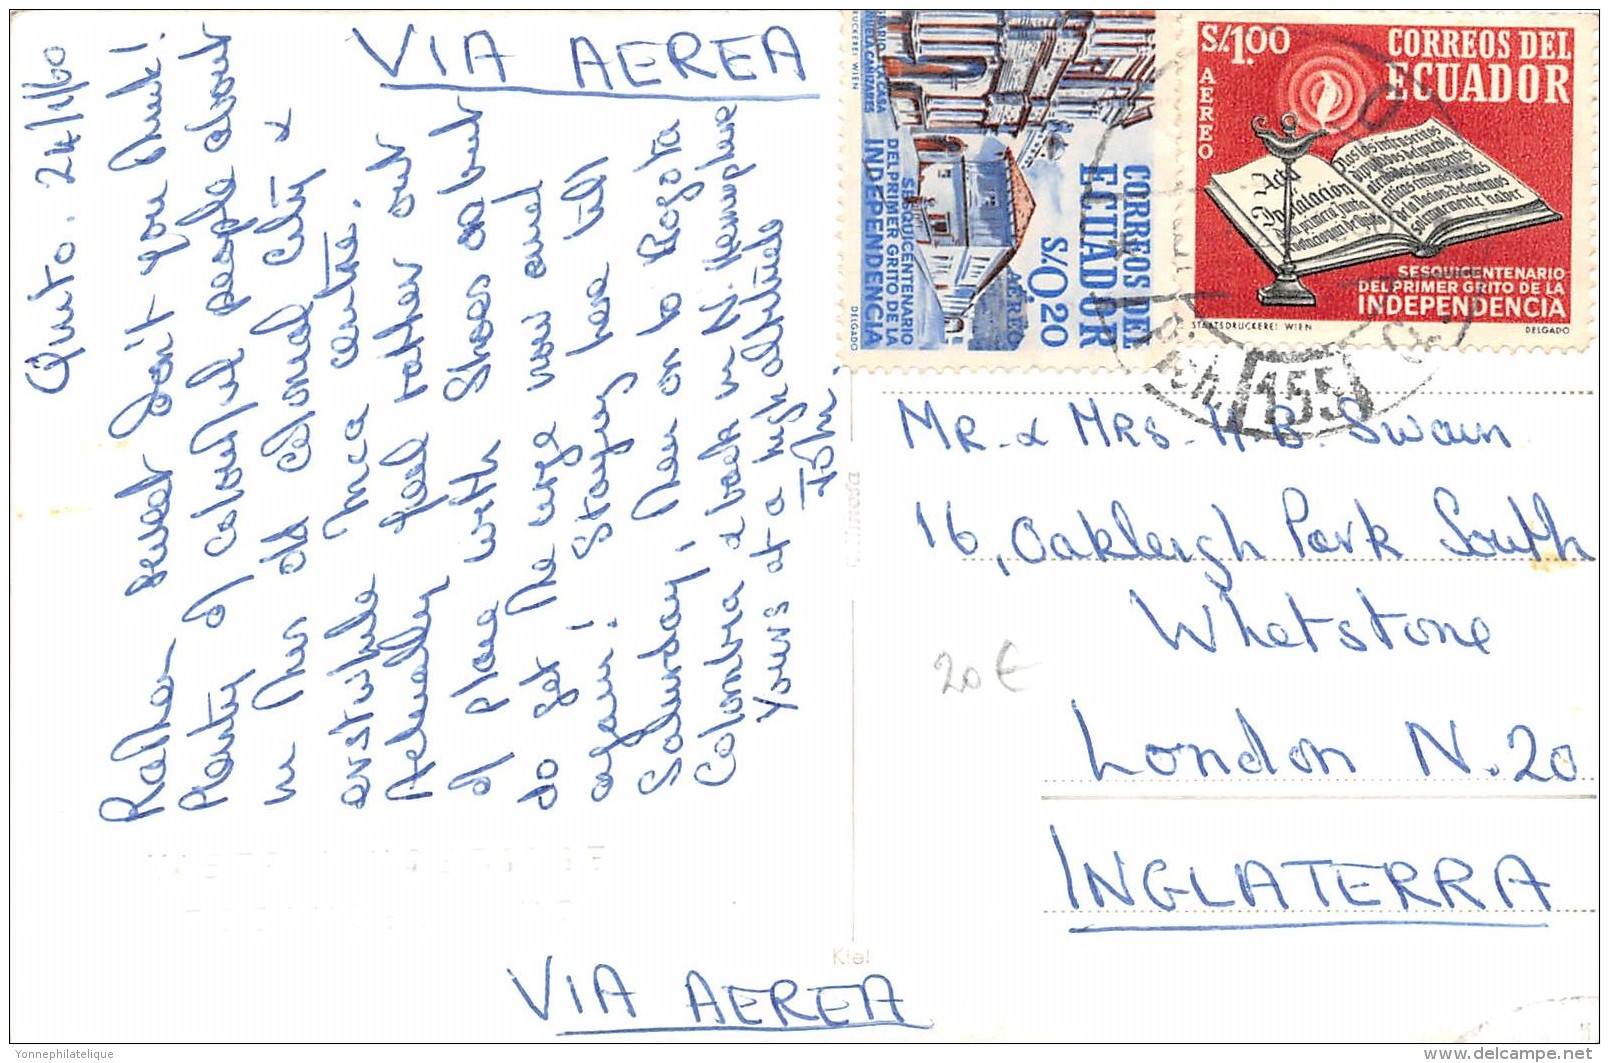 VIA AEREA
Quito. 24/1/60
Rather sweet don't you think!
Plenty of colourful people about
in this old colonial city &
erstwhile Inca centre.
Actually feel rather out
of place with shoes on but
do get the urge now and
again! Staying here till
Saturday, then on to Bogota
Colombia & back in N. Hemisphere
Yours at a high altitude
John.
VIA AEREA
Kiel
MR. & MRS. H.B. Swain
16, Oakleigh Park South
Whetstone
London N.20
INGLATERRA
20€
CORREOS DEL
ECUADOR
S/.0.20
AEREO
SESQUICENTENARIO
DEL PRIMER GRITO DE LA
INDEPENDENCIA
DELGADO
S/.1.00
AEREO
CORREOS DEL
ECUADOR
Acta
Instalación
SESQUICENTENARIO
DEL PRIMER GRITO DE LA
INDEPENDENCIA
STAATSDRUCKEREI WIEN
DELGADO
155
Yonnephilatelique
delcampe.net